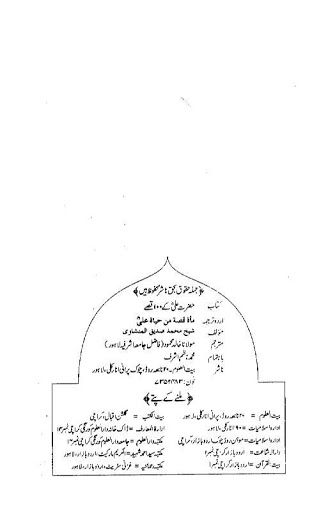 ﴿جملہ حقوق بحق ناشر محفوظ ہیں﴾
کتاب حضرت علیؓ کے ۱۰۰ قصے
اردو ترجمہ مأة قصة من حياة علیؓ
مؤلف شیخ محمد صدیق المنشاوی
مترجم مولانا خالد محمود (فاضل جامعہ اشرفیہ لاہور)
باہتمام محمد ناظم اشرف
ناشر بیت العلوم۔ ۲۰ نابھہ روڈ، چوک پرانی انارکلی، لاہور
فون: ۷۳۵۲۴۸۳
﴿ملنے کے پتے﴾
بیت العلوم = ۲۰ نابھہ روڈ، پرانی انارکلی، لاہور
بیت الکتب = گلشن اقبال، کراچی
ادارہ اسلامیات = ۱۹۰ انارکلی، لاہور
ادارۃ المعارف = ڈاک خانہ دارالعلوم کورنگی کراچی نمبر۱۴
ادارہ اسلامیات = موہن روڈ چوک اردو بازار، کراچی
مکتبہ دارالعلوم = جامعہ دارالعلوم کورنگی کراچی نمبر۱۴
دارالاشاعت = اردو بازار کراچی نمبر۱
مکتبہ سید احمد شہید = الکریم مارکیٹ، اردو بازار، لاہور
بیت القرآن = اردو بازار کراچی نمبر۱
مکتبہ رحمانیہ = غزنی سٹریٹ، اردو بازار، لاہور